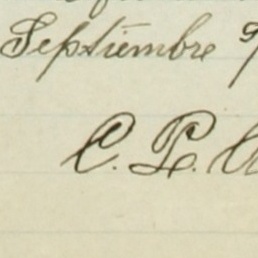 Septiembre 9
C. P.